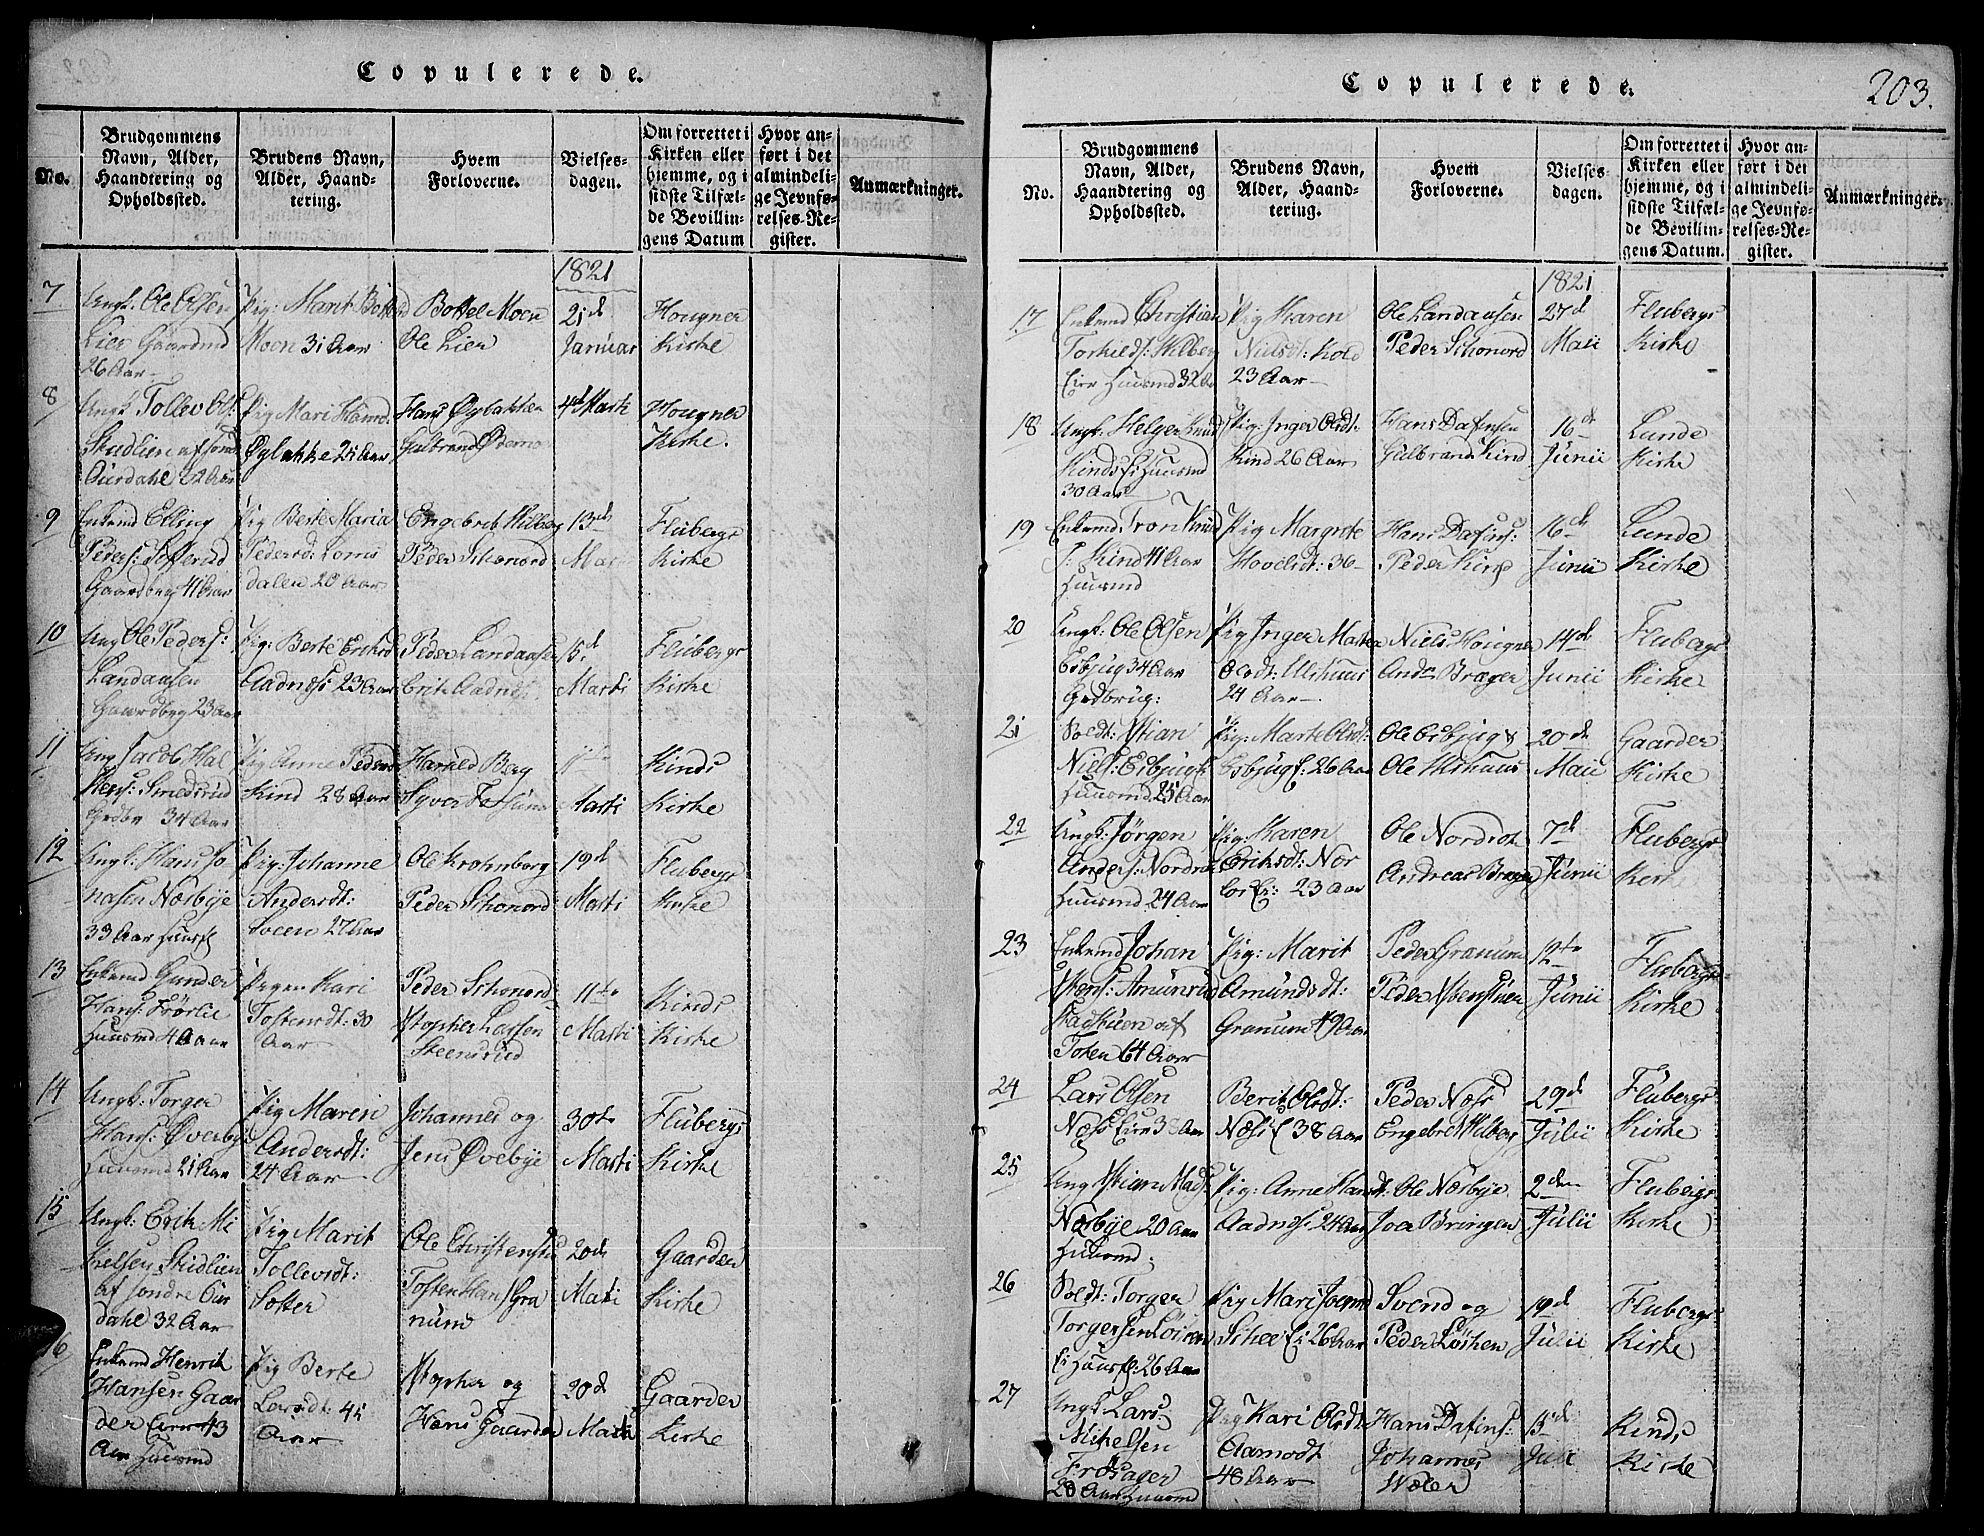 Copulerede.
No.
Brudgommens Navn, Alder, Haandtering og Opholdssted.
Brudens Navn, Alder, Haandtering.
Hvem Forloverne.
Vielses-dagen.
Om forrettet i Kirken eller hjemme, og i sidste Tilfælde Bevillingens Datum
Hvor anført i det almindelige Jevnførelses-Register.
Anmærkninger.
1821
7
Ungk: Ole Olsen
Lier Gaardmd
26 Aar
Pig: Marit Bottel
Moen 31 Aar
Bottel Moen
Ole Lier
21d
Januar
Hougner
Kirke
8
Ungk Tollev Ols:
Skudlien af søndr
Ourdahl 22 Aar
Pig Mari Hansd
Øybakke 21 Aar
Hans Øybakken
Gulbrand Ødemo
4d Marti
Hougner
Kirke.
9
Enkemd Elling
Peders: Sollerud
Gaardbrg 41 Aar
Pig Berte Maria
Pedersd: Loms
dalen 20 Aar
Engebret Hilberg
Peder Schonord
13d
Mar
Flubergs
Kirke
10
Ung Ole Peders:
Landaasen
Gaardbrg 23 Aar
Pig: Berte Eriksd
Aadnæs 23 Aar
Peder Landaasen
Erik Aadnæs
15d
Marti
Flubergs
Kirke
11
Ung Jacob Hal
stens: Smedsrud
Grdbr 34 Aar
Pig Anne Pedersd
Kind 28 Aar
Harald Berg
Syver Fossum
11te
Marti
Kinds
Kirke
12
Ungk: Hans Jo
nasen Næsbye
33 Aar Huusf
Pig: Johanne
Andersdt:
Soeen 27 Aar
Ole Krohnborg
Peder Schonord
19d
Marti
Flubergs
Kirke
13
Enkemd Gunder
Hans: Frørlie
Huusmd 40 Aar
Pigen Kari
Tostensdt: 30
Aar
Peder Schonord
Stopher Larsen
Steensrud
11te
Marti
Kinds
Kirke
14
Ungk: Torger
Hans: Øverby
Huusmd 21 Aar
Pig Maren
Andersdt:
24 Aar
Johannes og
Jens Øvebye
30te
Marti
Flubergs
Kirke
15
Ungk: Erik Mi
kelsen Skudlien
af søndre Our
dahl 32 Aar
Pig Marit
Tollevsdt:
Sotter
Ole Christenstu
Tosten Hans Gra
num
20de
Marti
Gaarder
Kirke
16
Enkemd Henrik
Hansen Gaar
der Eier 43
Aar Huusmd
Pig Berte
Larsdt: 45
Aar
Stopher og
Hans Gaarder
20d
Marti
Gaarder
Kirke
Copulerede.
203.
No.
Brudgommens Navn, Alder, Haandtering og Opholdssted.
Brudens Navn, Alder, Haandtering.
Hvem Forloverne.
Vielses-dagen.
Om forrettet i Kirken eller hjemme, og i sidste Tilfælde Bevillingens Datum.
Hvor anført i det almindelige Jevnførelses-Register.
Anmærkninger.
1821
17
Enkemd Christian
Torkilds: Hilberg
Eier Huusmd 32 Aar
Pig Maren
Nielsdt: Kold
23 Aar
Ole Landaasen
Peder Schonord
27d
Maii
Flubergs
Kirke
18
Ungk: Helge Knud
Kinds E: Huusmd
30 Aar
Pig: Inger Olsdt:
Kind 26 Aar
Hans Dafinsen
Gulbrand Kind
16de
Junii
Lunde
Kirke
19
Enkemd: Tron Knud
s: Kind 41 Aar
Huusmd
Pig Margrete
Hovelsdt: 36
Hans Dafins:
Peder Kind
16de
Junii
Lunde
Kirke
20
Ungk: Ole Olsen
Esbjug 34 Aar
Grdbrug:
Pig Inger Marta
Olsdt: Ulshuus
24 Aar
Niels Hougner
Ands Brager
14d
Junii
Flubergs
Kirke
21
Soldt: Stian
Niels: Esbjug E
Huusmd 25 Aar
Pig: Marte Olsdt:
Esbjug E: 26 Aar
Ole Esbjug &
Ole Ulshuus
20de
Maii
Gaarder
Kirke
22
Ungk: Jørgen
Anders: Nordro
Huusmd 24 Aar
Pig: Karen
Eriksdt: Nor
E: 23 Aar
Ole Nordro
Andreas Brager
7d
Junii
Flubergs
Kirk
23
Enkemd Johan
Stens: Amunrud
af
Toten 64 Aar
Pig: Marit
Amundsdt:
Granum 49 Aar
Peder Granum
Peder
12te
Junii
Flubergs
Kirke
24
Lars Olsen
Næss Eier 38 Aar
Berit Olsdt:
Næss E 38 Aar
Peder Næss
Engebret Hilberg
29d
Julii
Flubergs
Kirke
25
Ung Stian Mads:
Næsbye 20 Aar
Huusmd:
Pig: Anne Hansdt:
Aadnæs 24 Aar
Ole Næsbye
Joen Bringen
2den
Julii
Flubergs
Kirke
26
Soldt: Torger
Torgersen Løken
E: Huusf: 26 Aar
Pig Mari Joensd
Schee E: 26 Aar
Svend og
Peder Løken
19d
Julii
Flubergs
Kirke
27
Ungk Lars
Mikelsen
Frøsager
28 Aar Huusmd
Pig Kari Olsdt
Aamodt
48 Aar
Hans Dafins:
Johannes
Wæler
15d
Juli
Kinds
Kirke